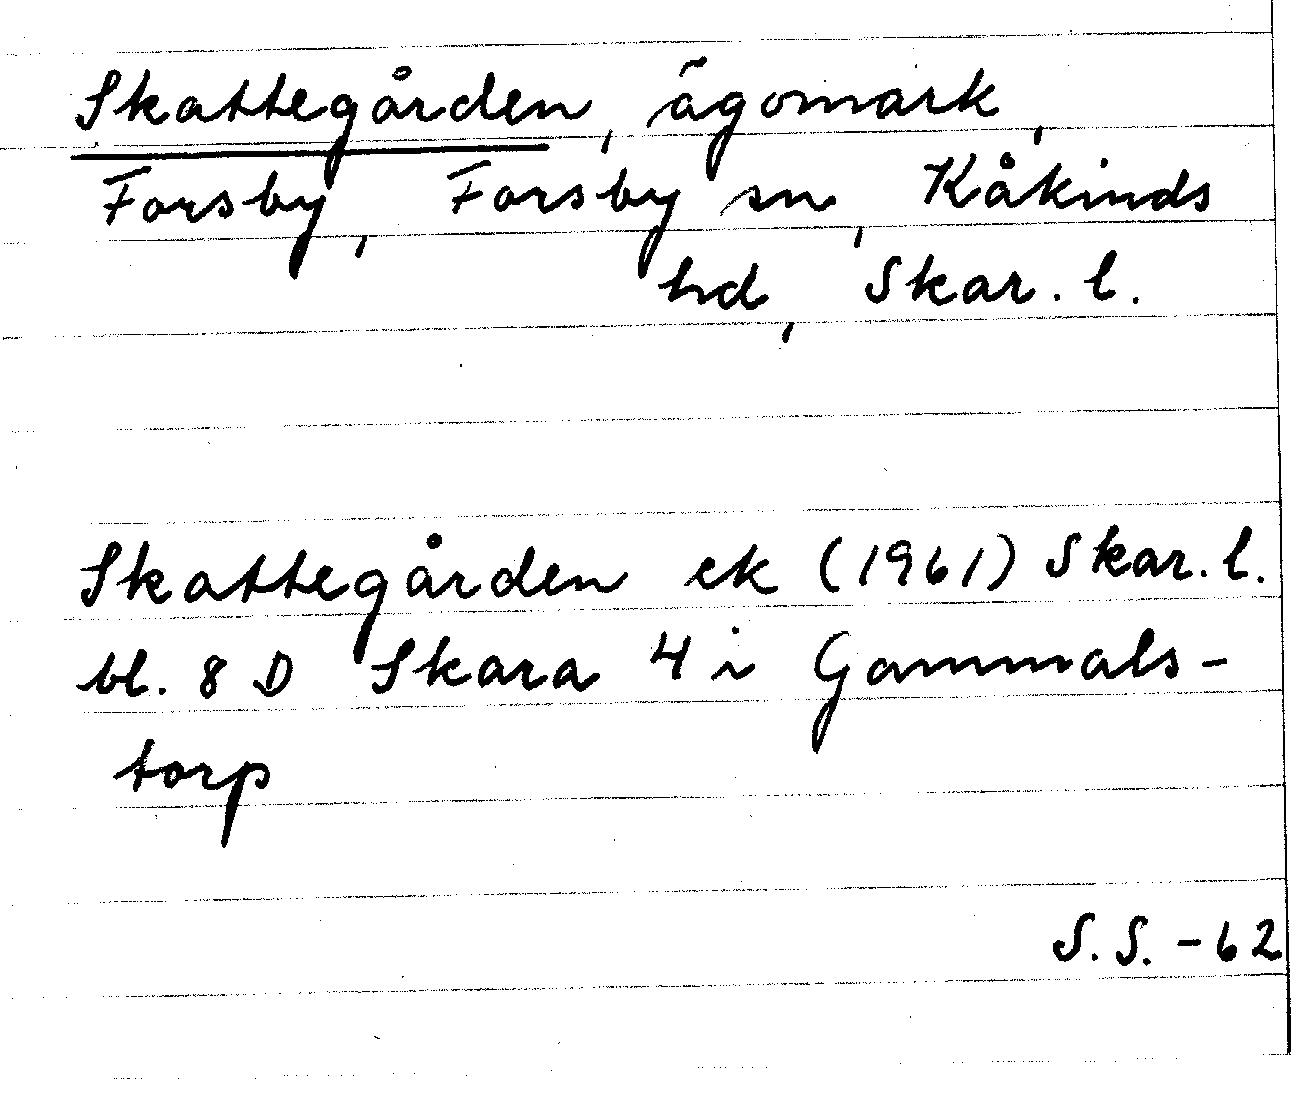 Skattegården, ägomark,
Forsby, Forsby sn, Kåkinds
hd, Skar. l.
Skattegården ek (1961) Skar. l.
bl. 8 D Skara 4 i Gammals-
torp
S.S. -62